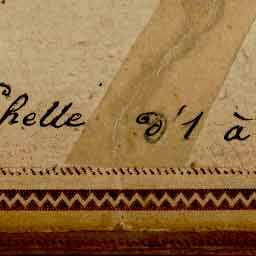 chelle d'1 à